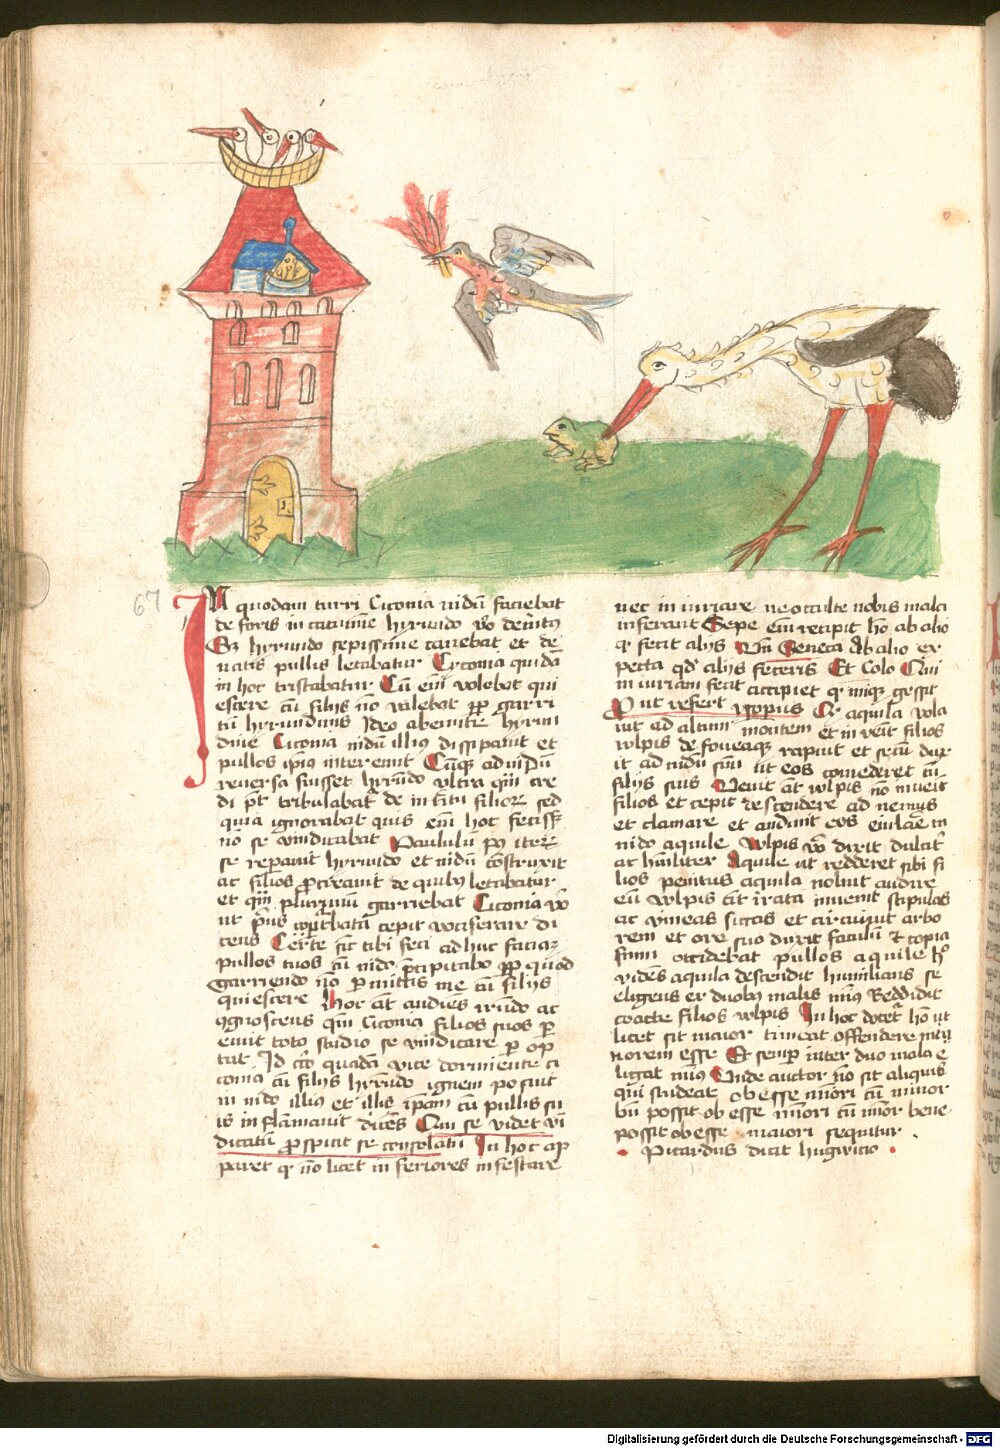 67
IN quodam turri Ciconia nidū faciebat
de foris in cacumine hyrundo vo deintus
Sz hyrundo sepissime canebat et de
natis pullis letabatur Cyconia quidā
in hoc tristabatur Cū em volebat qui
escere cū filijs nō valebat ꝓp garri
tū hyrundinis Ideo absente hyrun
dine Ciconia nidū illius dissipauit et
pullos ipius interemit Cūqꝫ ad nidū
reuersa fuisset hyrūdo ultra qm cre
di pt tribulabat de int'itu filioꝝ sed
quia ignorabat quis em hoc fecisset
nō se vindicabat Paululū pꝰ iteꝝ
se reparauit hyrundo et nidū construxit
ac filios ꝓcreauit de quibꝰ letabatur
et qm plurimū garriebat Ciconia vo
ut pus cōturbata cepit vociferare di
cens Certe sic tibi feci adhuc faciā
pullos tuos cū nido p̄cipitabo ꝓp quod
garriendo nō ꝑmittis me cū filijs
quiescere Hoc āt audiēs irūdo ac
ꝯgnoscens qm Ciconia filios suos ꝑ
emit toto studio se vindicare ꝑop
tat Id c̄co quadā vice dormiente ci
conia cū filijs hyrūdo ignem posuit
in nido illius et illis ipam cū pullis su
is inflamauit dicēs Cum se videt vī
dicatū ꝓspicit se consolatū In hoc ap
paret qꝫ nō licet inferiores infestare
nec iniuriare ne occulte nobis mala
inferant Sepe em recipit hō ab alio
qꝫ fecit alijs Vn Seneca Ab alio ex
pecta qd alijs feceris Et Colo Cui
iniuriam fecit accipiet qꝫ iniqꝫ gessit
Put refert ysopus Qꝫ aquila vola
uit ad altum montem et inuenit filios
wlpis de foueaqꝫ rapuit et secū dux
it ad nidū suū ut eos comederet cū
filijs suis Venit āt wlpis nō inueit
filios et cepit descendere ad nemus
et clamare et audiuit eos eiulare in
nido aquile Wlpis vo dixit dulcit'
ac hūiliter Aquile ut redderet sibi fi
lios penitus aquila noluit audire
eū Wlpis āt irata inuenit stipulas
ac vineas siccas et circuiuit arbo
rem et ore suo duxit faculū & copia
fumi occidebat pullos aquile h
vidēs aquila descendit humilians se
eligens ex duobꝰ malis minꝰ Reddidit
coacte filios wlpis In hoc docet' hō ut
licet sit maior timeat offendere mi
norem esse Et semp inter duo mala e
ligat minꝰ Unde auctor nō sit aliquis
qui studeat obesse minori cū minor
bn possit obesse minori cū minor bene
possit obesse maiori sequitur .
Picardus dicit hugwicio
Digitalisierung gefördert durch die Deutsche Forschungsgemeinschaft - DFG